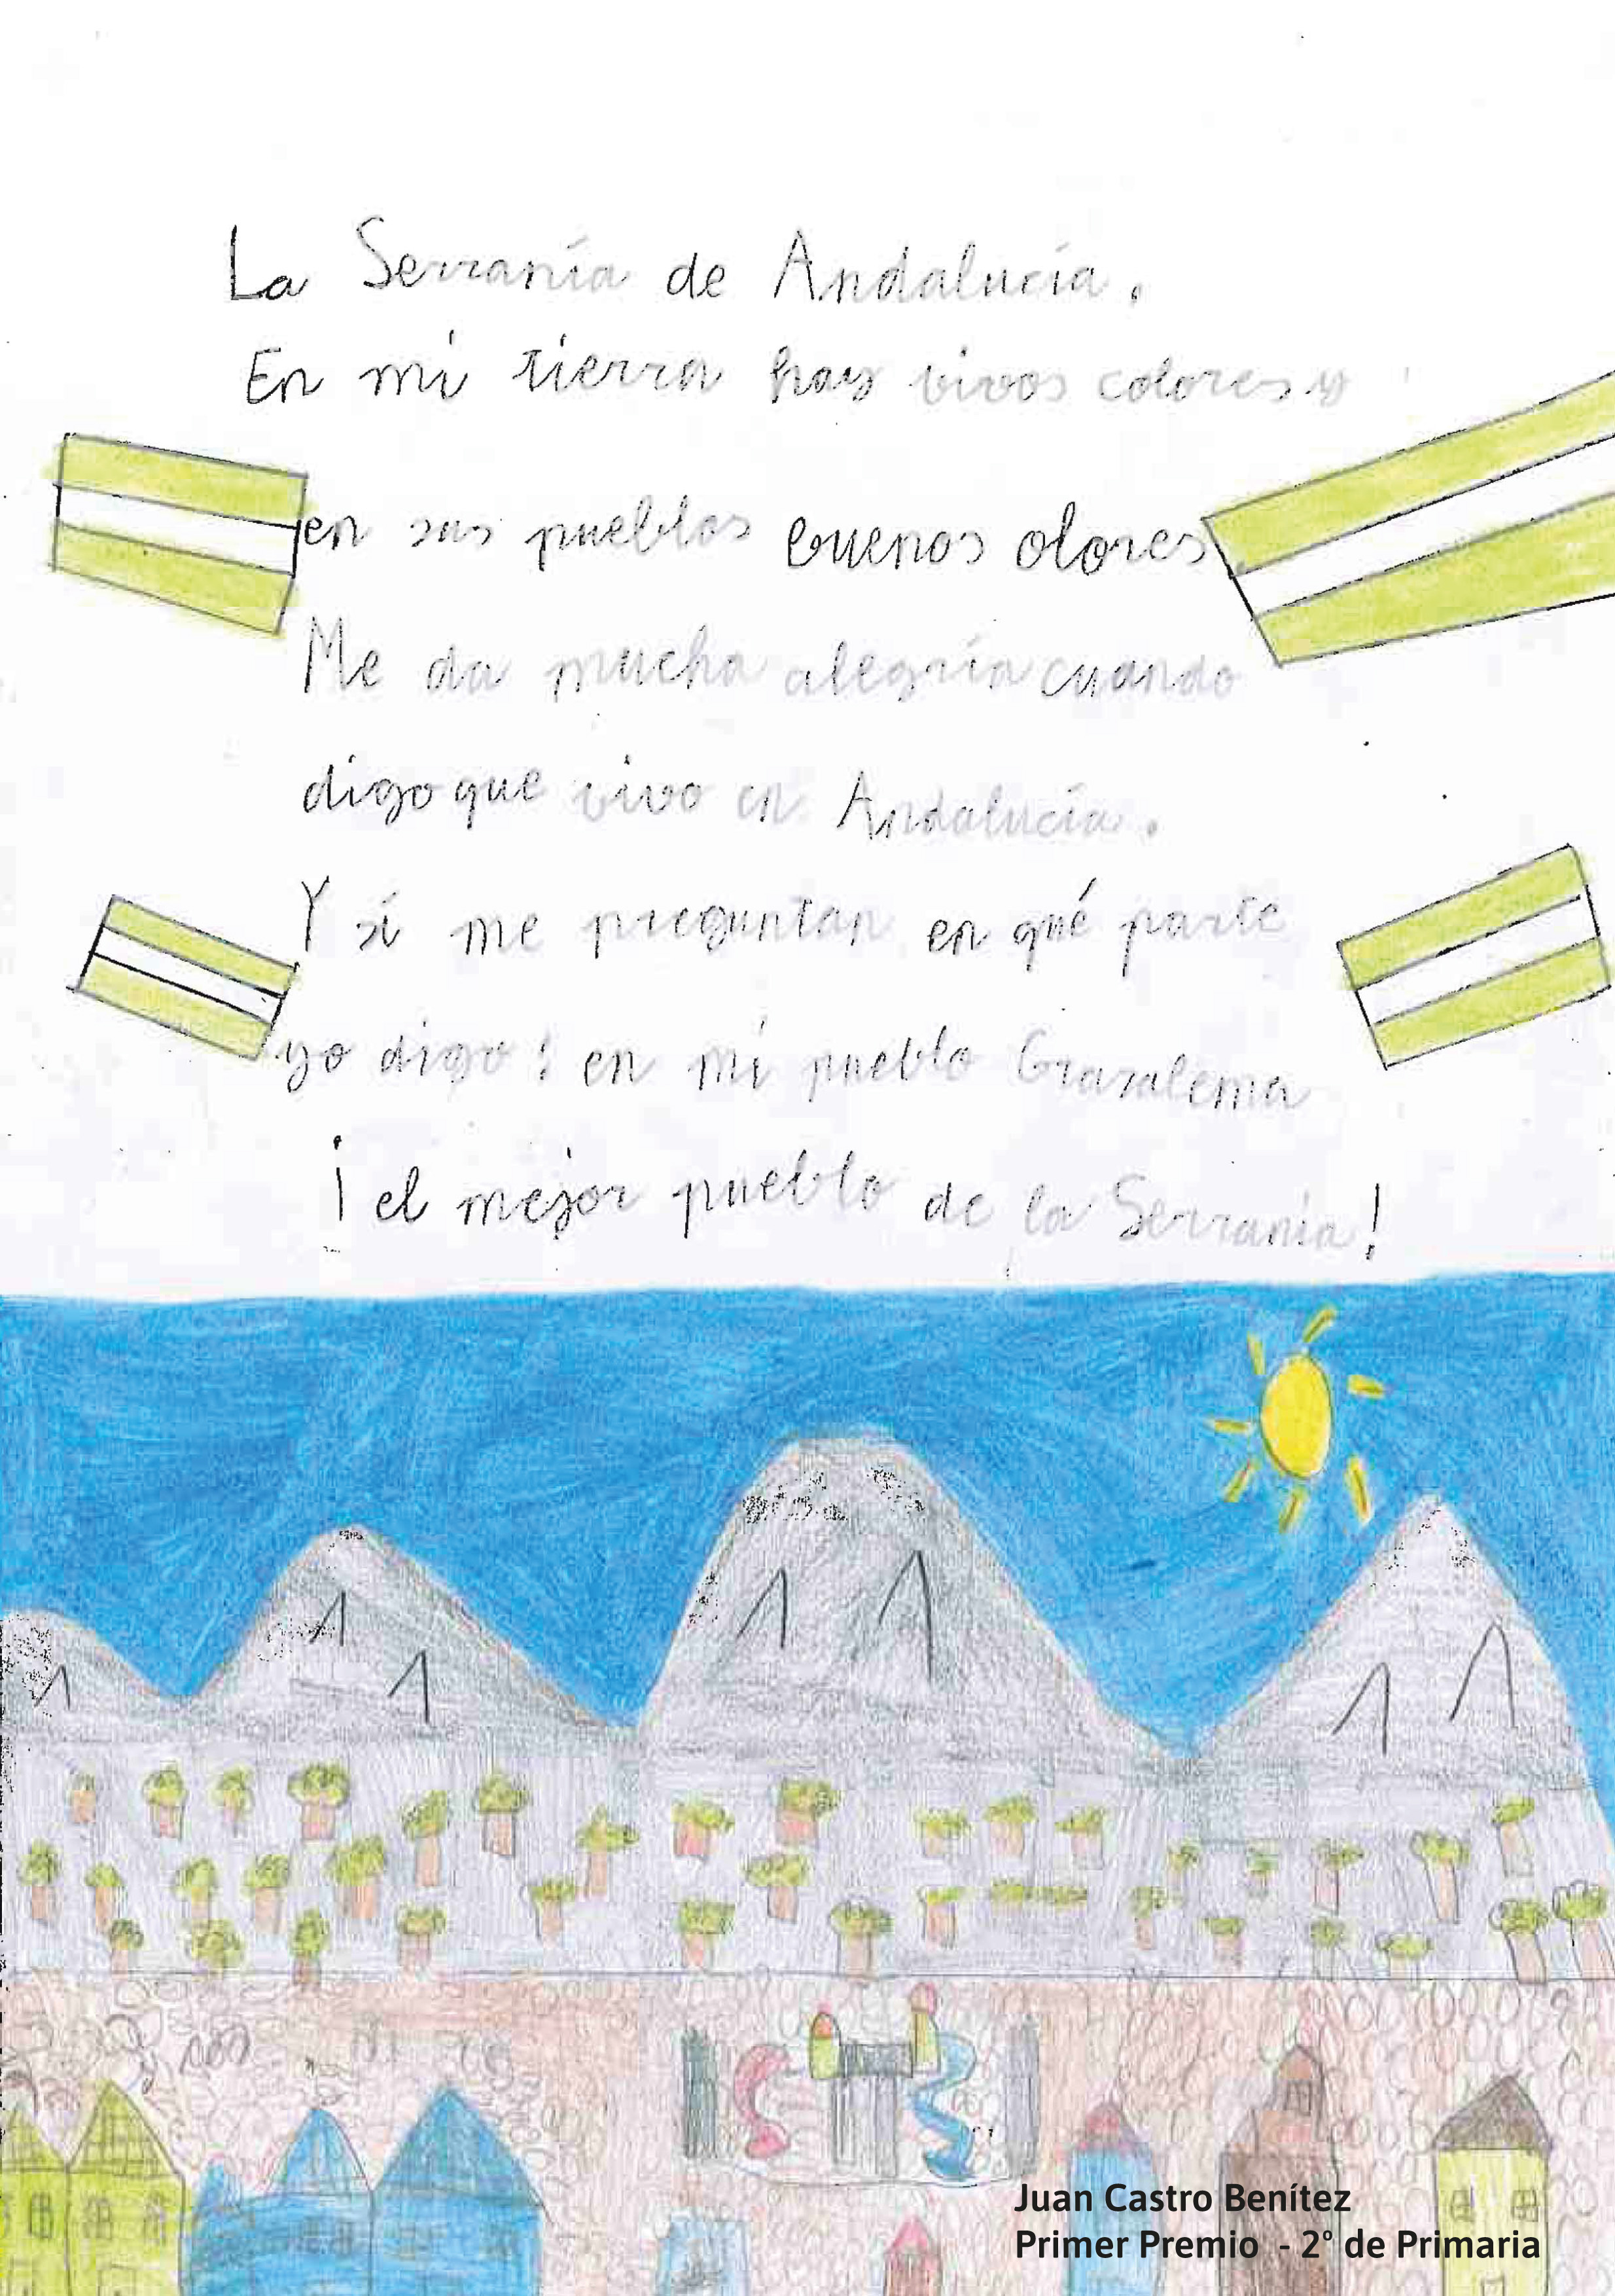 La Serranía de Andalucía.
En mi tierra hay vivos colores y
en sus pueblos buenos olores
Me da mucha alegría cuando
digo que vivo en Andalucía.
Y si me preguntan en qué parte
yo digo: en mi pueblo Grazalema
¡el mejor pueblo de la Serranía!
Juan Castro Benítez
Primer Premio - 2º de Primaria